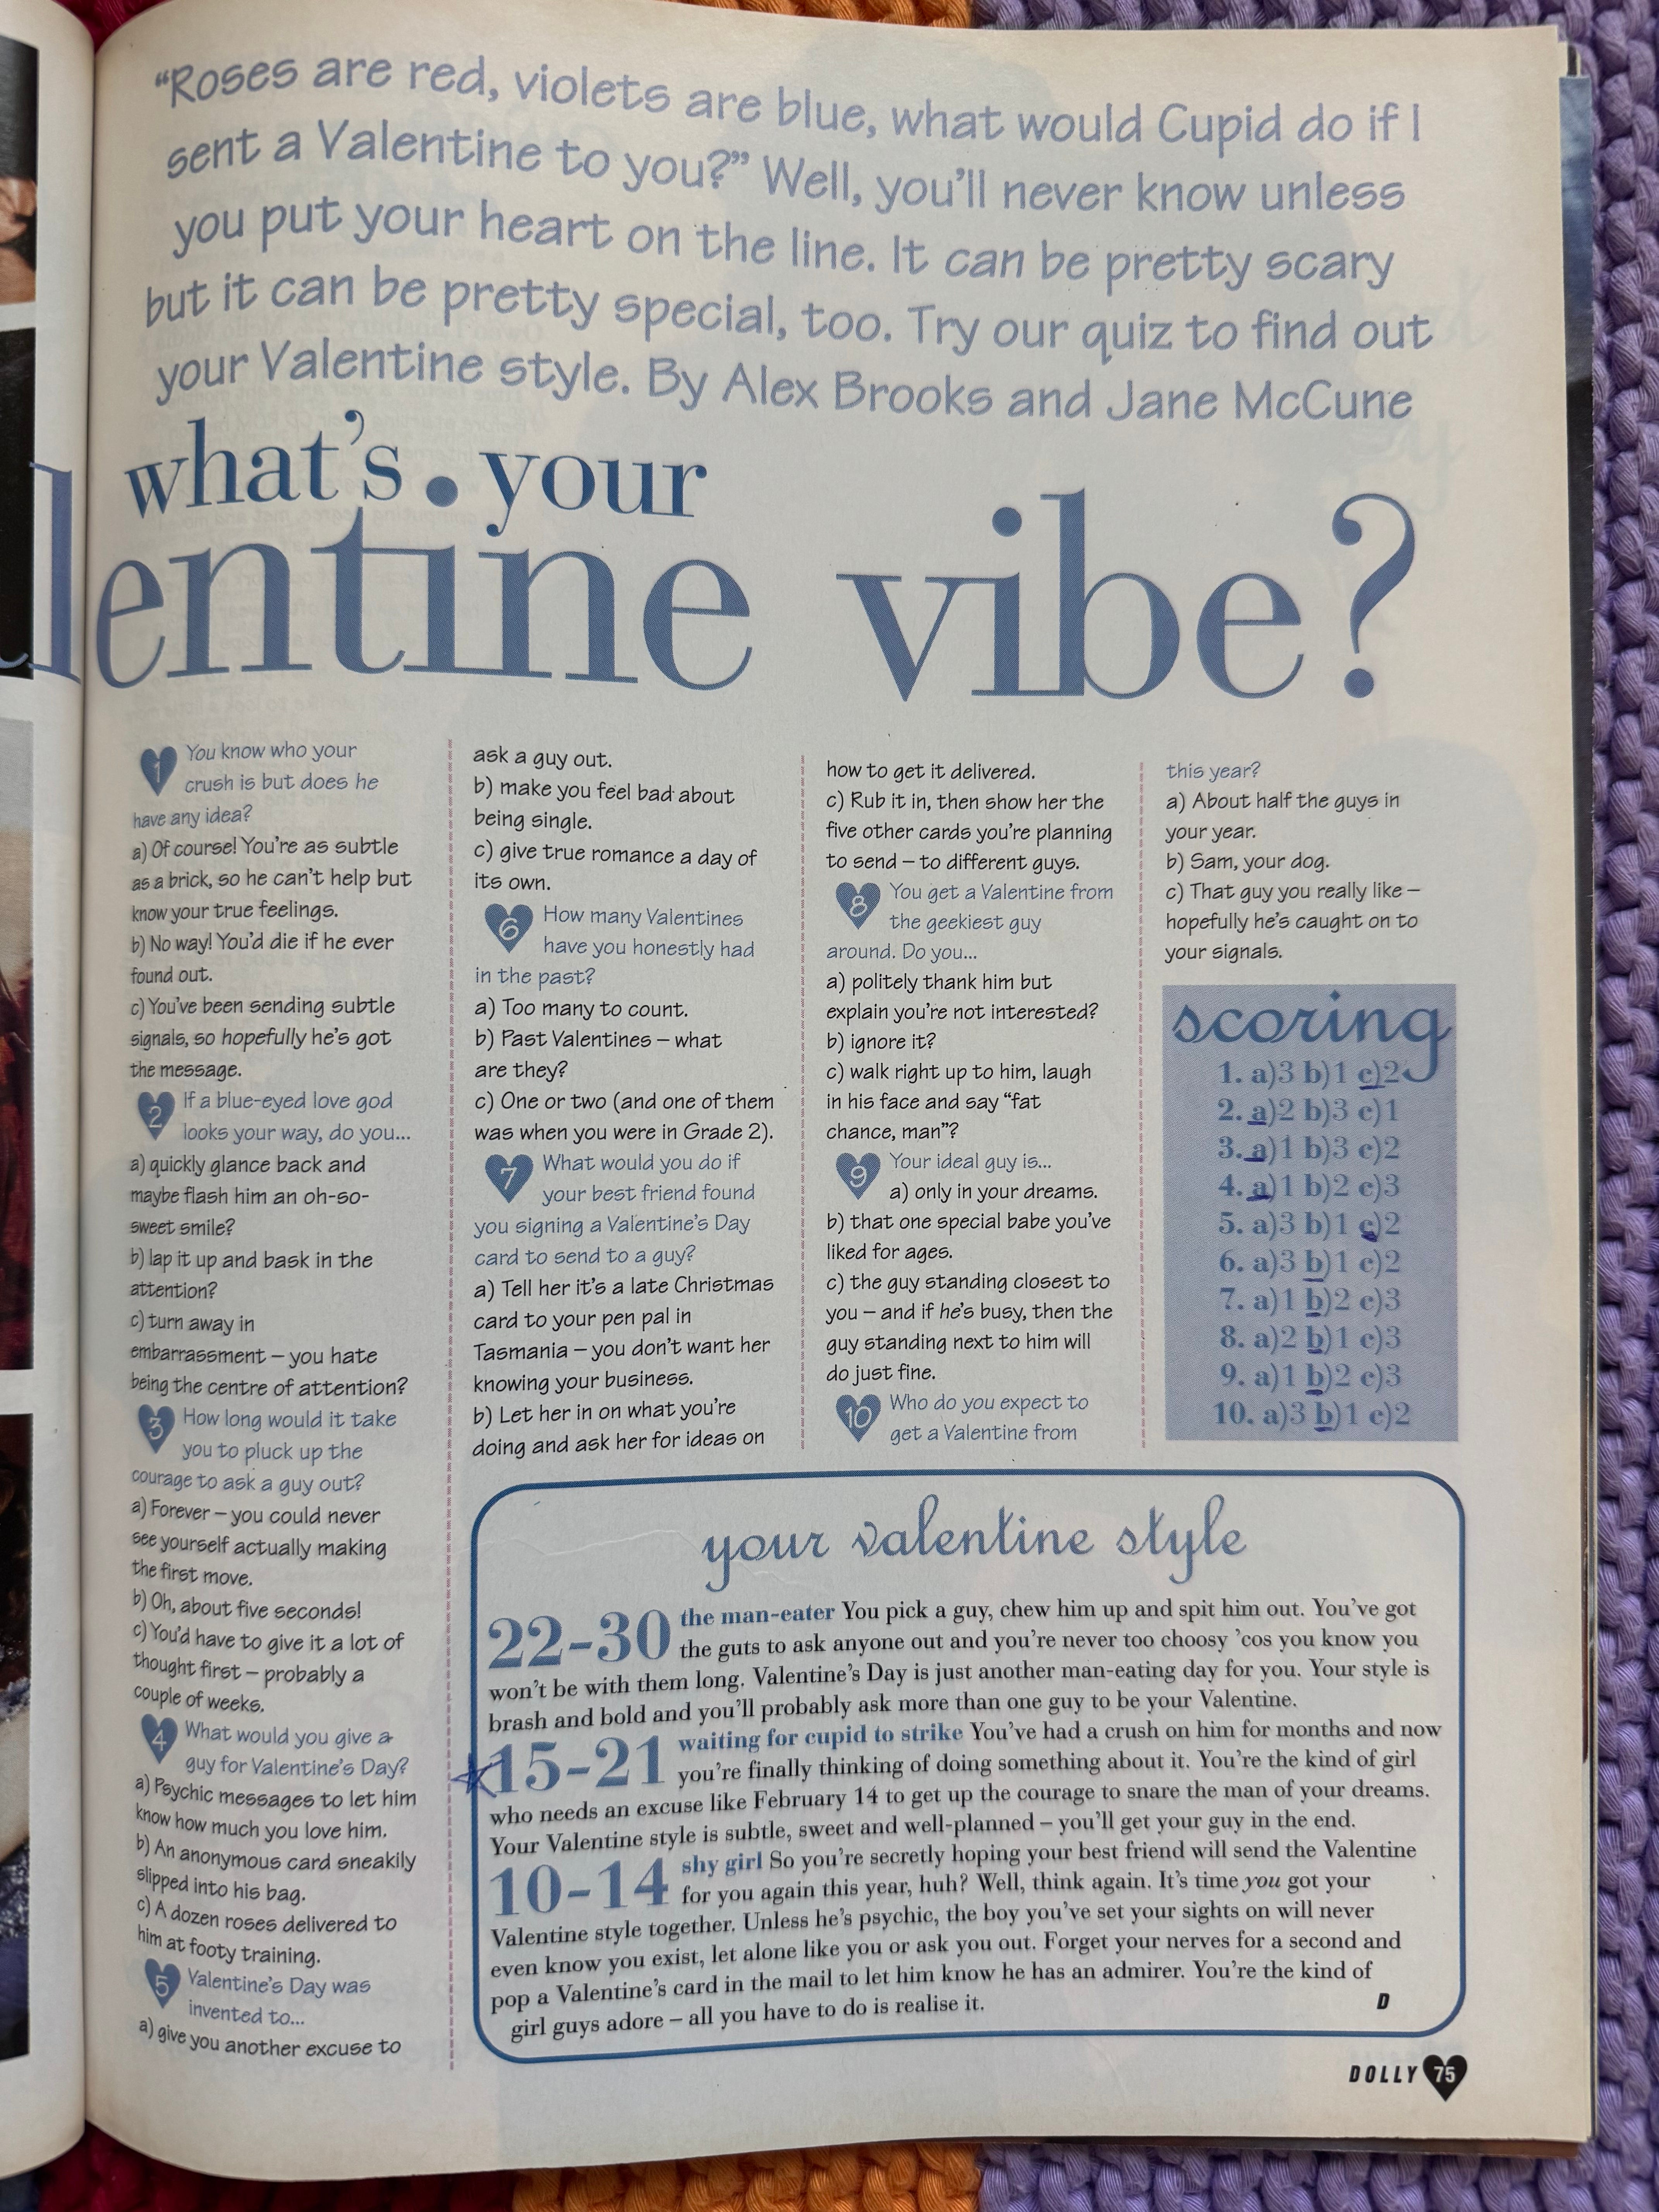 “Roses are red, violets are blue, what would Cupid do if I
sent a Valentine to you?” Well, you’ll never know unless
you put your heart on the line. It can be pretty scary
but it can be pretty special, too. Try our quiz to find out
your Valentine style. By Alex Brooks and Jane McCune
what’s • your
lentine vibe?
1 You know who your
crush is but does he
have any idea?
a) Of course! You’re as subtle
as a brick, so he can’t help but
know your true feelings.
b) No way! You’d die if he ever
found out.
c) You’ve been sending subtle
signals, so hopefully he’s got
the message.
2 If a blue-eyed love god
looks your way, do you...
a) quickly glance back and
maybe flash him an oh-so-
sweet smile?
b) lap it up and bask in the
attention?
c) turn away in
embarrassment – you hate
being the centre of attention?
3 How long would it take
you to pluck up the
courage to ask a guy out?
a) Forever – you could never
see yourself actually making
the first move.
b) Oh, about five seconds!
c) You’d have to give it a lot of
thought first – probably a
couple of weeks.
4 What would you give a
guy for Valentine’s Day?
a) Psychic messages to let him
know how much you love him.
b) An anonymous card sneakily
slipped into his bag.
c) A dozen roses delivered to
him at footy training.
5 Valentine’s Day was
invented to...
a) give you another excuse to
ask a guy out.
b) make you feel bad about
being single.
c) give true romance a day of
its own.
6 How many Valentines
have you honestly had
in the past?
a) Too many to count.
b) Past Valentines – what
are they?
c) One or two (and one of them
was when you were in Grade 2).
7 What would you do if
your best friend found
you signing a Valentine’s Day
card to send to a guy?
a) Tell her it’s a late Christmas
card to your pen pal in
Tasmania – you don’t want her
knowing your business.
b) Let her in on what you’re
doing and ask her for ideas on
how to get it delivered.
c) Rub it in, then show her the
five other cards you’re planning
to send – to different guys.
8 You get a Valentine from
the geekiest guy
around. Do you...
a) politely thank him but
explain you’re not interested?
b) ignore it?
c) walk right up to him, laugh
in his face and say “fat
chance, man”?
9 Your ideal guy is...
a) only in your dreams.
b) that one special babe you’ve
liked for ages.
c) the guy standing closest to
you – and if he’s busy, then the
guy standing next to him will
do just fine.
10 Who do you expect to
get a Valentine from
this year?
a) About half the guys in
your year.
b) Sam, your dog.
c) That guy you really like –
hopefully he’s caught on to
your signals.
scoring
1. a)3 b)1 c)2
2. a)2 b)3 c)1
3. a)1 b)3 c)2
4. a)1 b)2 c)3
5. a)3 b)1 c)2
6. a)3 b)1 c)2
7. a)1 b)2 c)3
8. a)2 b)1 c)3
9. a)1 b)2 c)3
10. a)3 b)1 c)2
your valentine style
22-30 the man-eater You pick a guy, chew him up and spit him out. You’ve got
the guts to ask anyone out and you’re never too choosy ’cos you know you
won’t be with them long. Valentine’s Day is just another man-eating day for you. Your style is
brash and bold and you’ll probably ask more than one guy to be your Valentine.
15-21 waiting for cupid to strike You’ve had a crush on him for months and now
you’re finally thinking of doing something about it. You’re the kind of girl
who needs an excuse like February 14 to get up the courage to snare the man of your dreams.
Your Valentine style is subtle, sweet and well-planned – you’ll get your guy in the end.
10-14 shy girl So you’re secretly hoping your best friend will send the Valentine
for you again this year, huh? Well, think again. It’s time you got your
Valentine style together. Unless he’s psychic, the boy you’ve set your sights on will never
even know you exist, let alone like you or ask you out. Forget your nerves for a second and
pop a Valentine’s card in the mail to let him know he has an admirer. You’re the kind of
girl guys adore – all you have to do is realise it. D
DOLLY 75